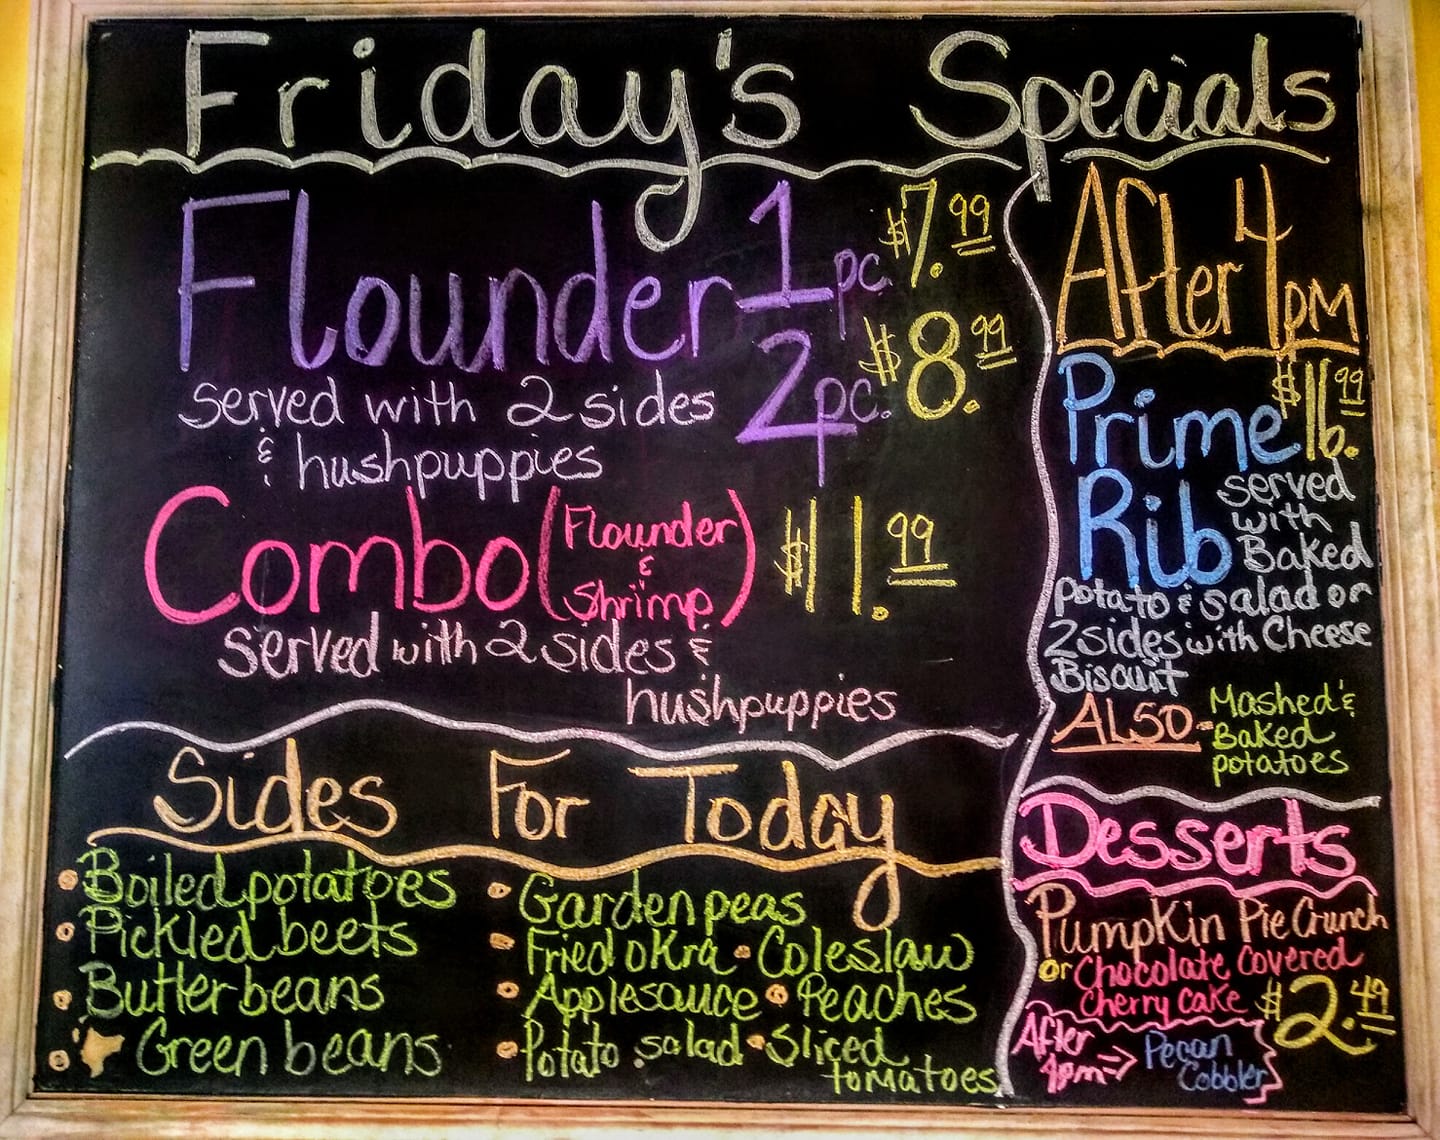 Friday's Specials
Flounder 1 pc. $7.99
2 pc. $8.99
served with 2 sides
& hushpuppies
Combo (Flounder & Shrimp) $11.99
served with 2 sides &
hushpuppies
Sides For Today
• Boiled potatoes
• Pickled beets
• Butter beans
• Green beans
• Garden peas
• Fried okra • Coleslaw
• Applesauce • Peaches
• Potato salad • Sliced
tomatoes
After 4pm
Prime $16.99
Rib served
with
Baked
potato & salad or
2 sides with Cheese
Biscuit
ALSO - Mashed &
Baked
potatoes
Desserts
Pumpkin Pie Crunch
or Chocolate Covered
Cherry Cake $2.49
After
4pm → Pecan
Cobbler